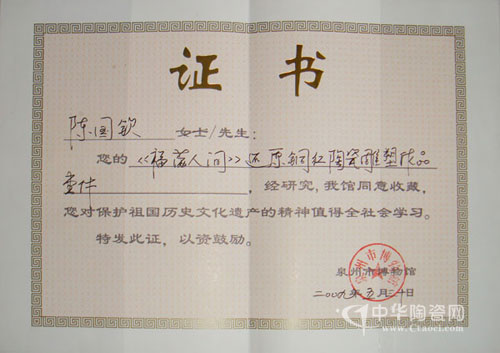 证书
陈国钦 女士/先生：
您的《福满人间》还原铜红陶瓷雕塑作品
壹件，经研究，我馆同意收藏。
您对保护祖国历史文化遗产的精神值得全社会学习。
特发此证，以资鼓励。
泉州市博物馆
二00九年五月二十日
中华陶瓷网
www.Ctaoci.com